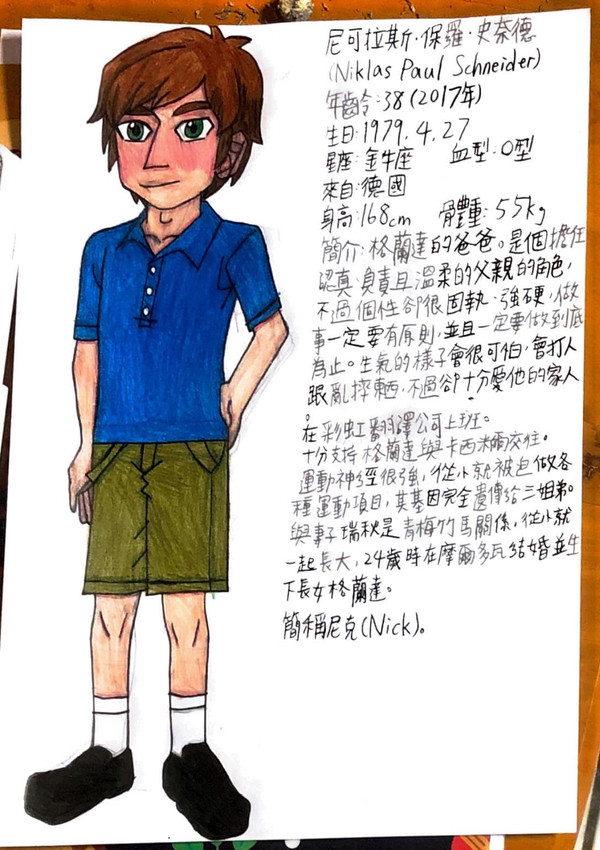 尼可拉斯·保羅·史奈德
(Niklas Paul Schneider)
年齡:38(2017年)
生日:1979.4.27
星座:金牛座 血型:O型
來自:德國
身高:168cm 體重:55kg
簡介:格蘭達的爸爸。是個擔任
認真、負責且溫柔的父親的角色,
不過個性卻很固執、強硬,做
事一定要有原則,並且一定要做到底
為止。生氣的樣子會很可怕,會打人
跟亂摔東西,不過卻十分愛他的家人
。
在彩虹翻譯公司上班。
十分支持格蘭達與卡西米爾交往。
運動神經很強,從小就被迫做各
種運動項目,其基因完全遺傳給三姐弟。
與妻子瑞秋是青梅竹馬關係,從小就
一起長大,24歲時在摩爾多瓦結婚並生
下長女格蘭達。
簡稱尼克(Nick)。